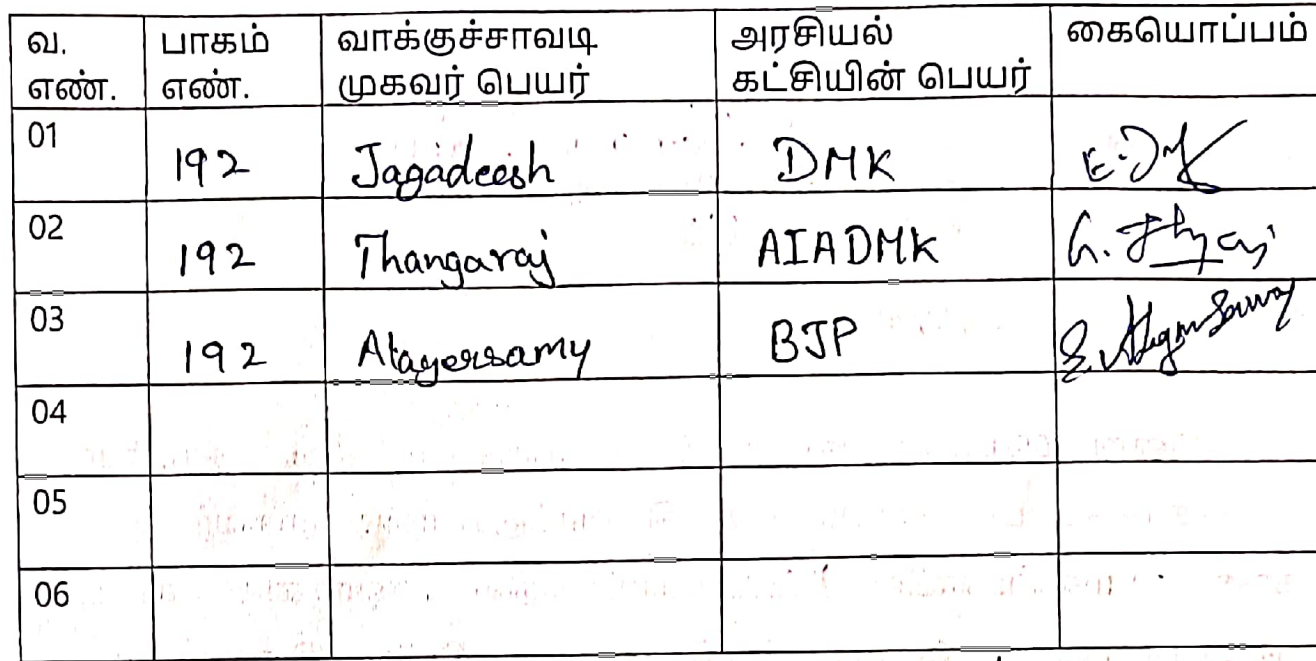 வ. எண். பாகம் எண். வாக்குச்சாவடி முகவர் பெயர் அரசியல் கட்சியின் பெயர் கையொப்பம்
01 192 Jagadeesh DMK
02 192 Thangaraj AIADMK
03 192 Alagersamy BJP
04
05
06